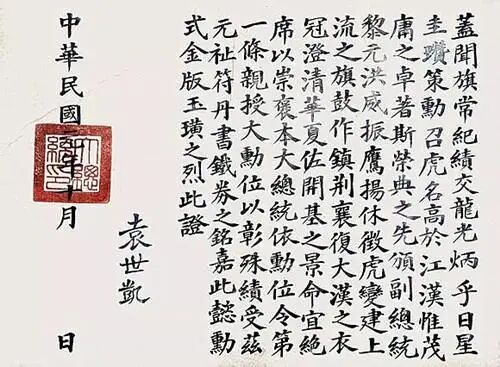 蓋聞旗常紀績交龍光炳乎日星
圭瓚策勳召虎名高於江漢惟茂
庸之卓著斯榮典之先頒副總統
黎元洪威振鷹揚休徵虎變建上
流之旗鼓作鎮荆襄復大漢之衣
冠澄清華夏佐開基之景命宜絕
席以崇褒本大總統依勳位令第
一條親授大勳位以彰殊績受茲
元祉符丹書鐵券之銘嘉此懿勳
式金版玉璜之烈此證
袁世凱
中華民國二年十月 日